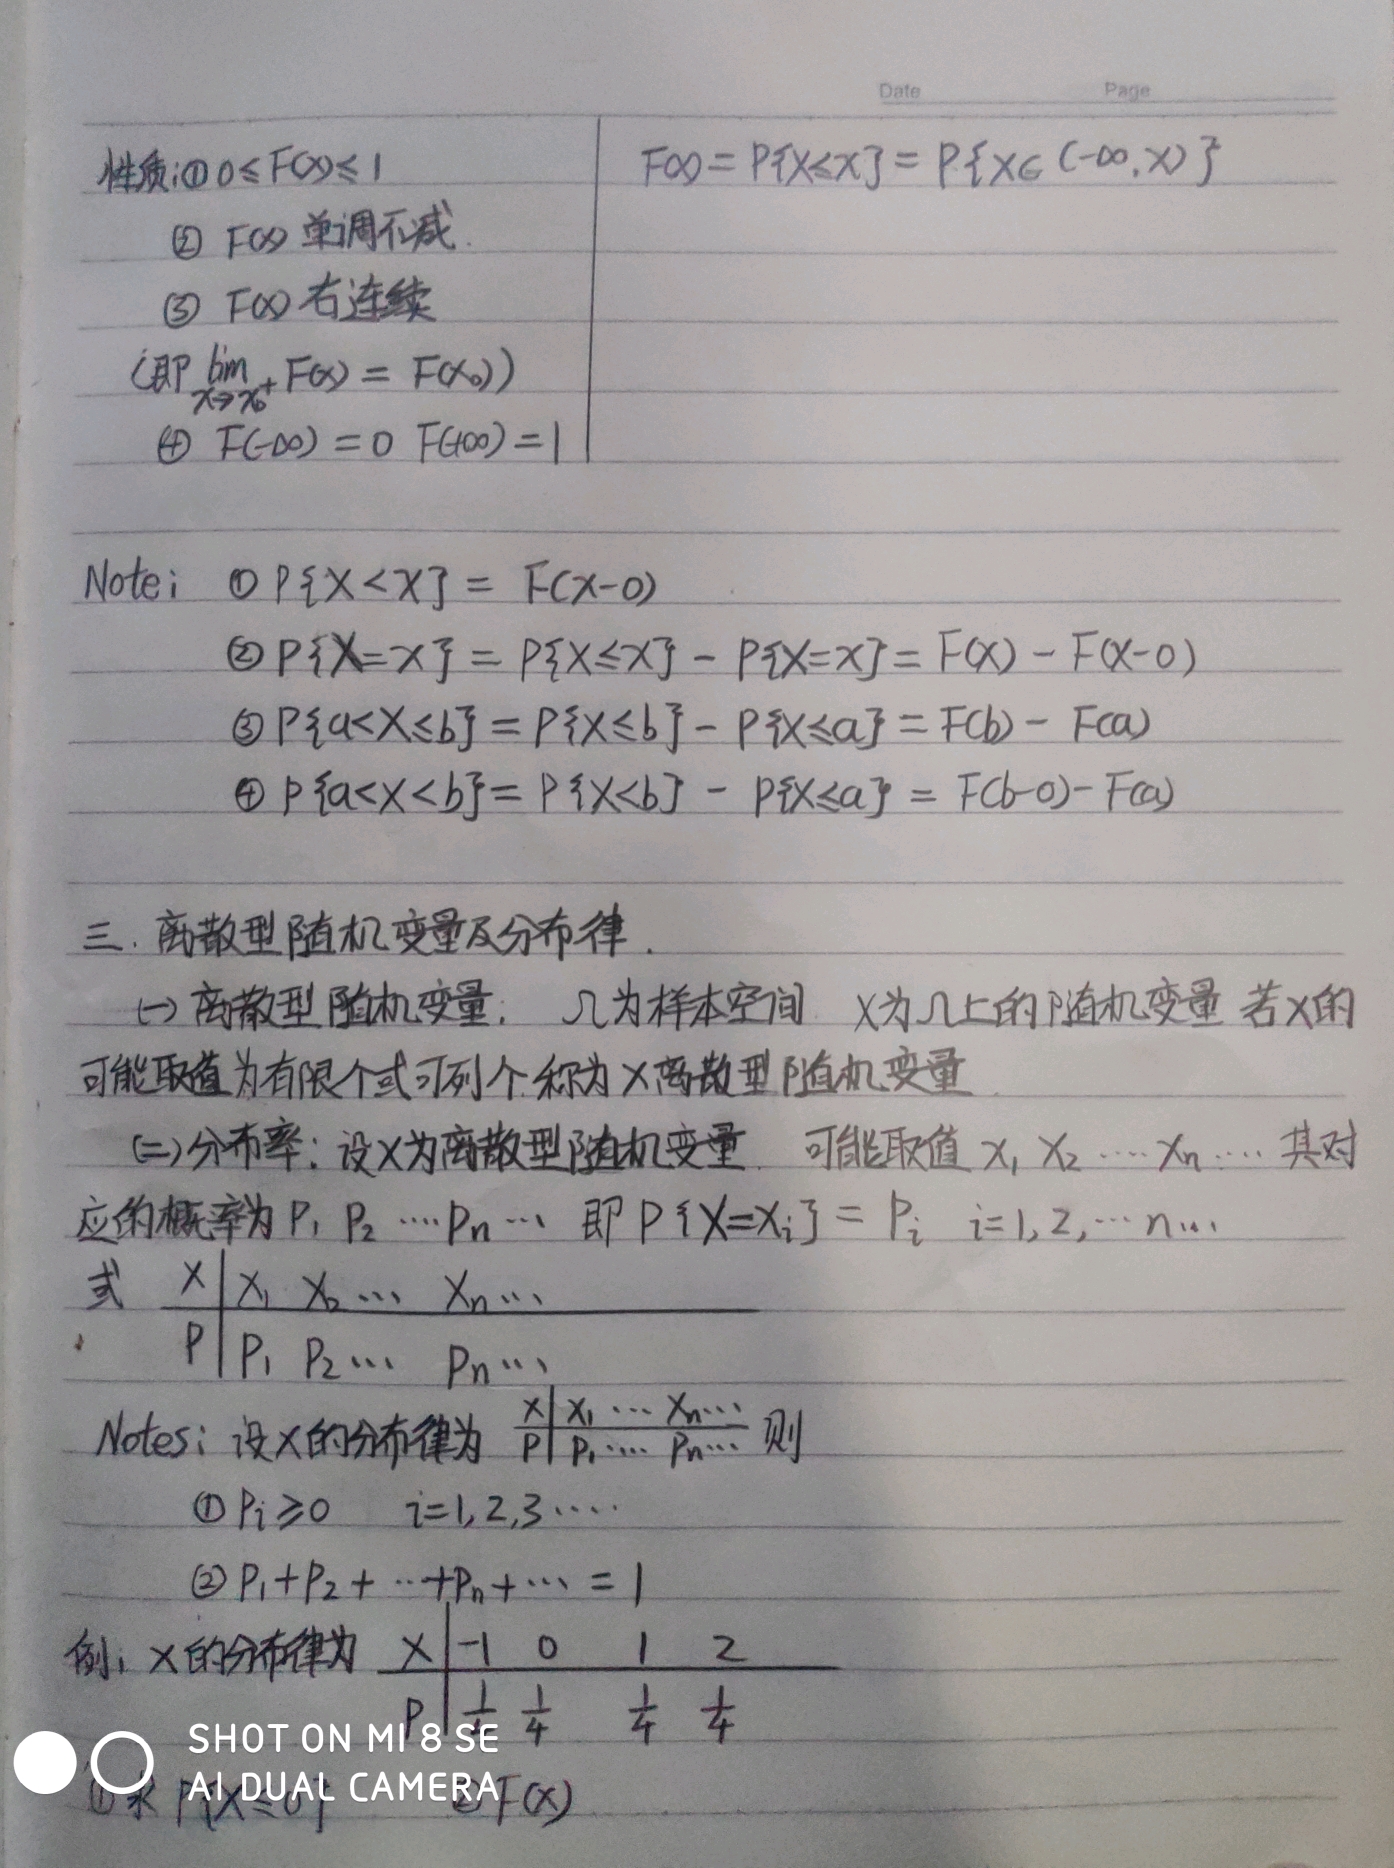 Date Page
性质:① 0≤F(x)≤1
② F(x) 单调不减.
③ F(x) 右连续
(即 lim x→x₀⁺ F(x) = F(x₀))
④ F(-∞) = 0 F(+∞) = 1
F(x) = P{X≤x} = P{X∈(-∞,x)}
Note: ① P{X<x} = F(x-0)
② P{X=x} = P{X≤x} - P{X=x} = F(x) - F(x-0)
③ P{a<X≤b} = P{X≤b} - P{X≤a} = F(b) - F(a)
④ P{a<X<b} = P{X<b} - P{X≤a} = F(b-0) - F(a)
三. 离散型随机变量及分布律.
(一) 离散型随机变量: Ω为样本空间 X为Ω上的随机变量 若X的
可能取值为有限个或可列个.称为X离散型随机变量
(二) 分布率: 设X为离散型随机变量. 可能取值 x₁ x₂ ···· xₙ ···· 其对
应的概率为 P₁ P₂ ···· Pₙ ··· 即 P{X=xᵢ} = Pᵢ i=1,2,···n···
或 X | x₁ x₂ ··· xₙ ···
P | P₁ P₂ ··· Pₙ ···
Notes: 设X的分布律为 X | x₁ ··· xₙ··· 则
P | P₁ ···· Pₙ···
① Pᵢ≥0 i=1,2,3 ····
② P₁+P₂+ ··· +Pₙ+ ··· = 1
例: X的分布律为 X | -1 0 1 2
P | 1/4 1/4 1/4 1/4
① 求 P{X≤0} ② F(x)
SHOT ON MI 8 SE
AI DUAL CAMERA